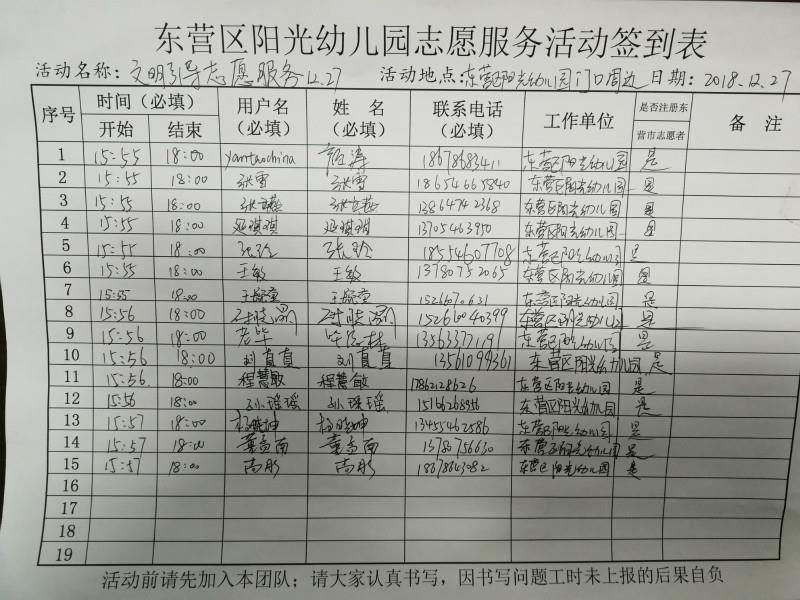 东营区阳光幼儿园志愿服务活动签到表
活动名称：文明引导志愿服务12.27 活动地点：东营区阳光幼儿园门口周边 日期：2018.12.27
序号 时间（必填） 用户名（必填） 姓名（必填） 联系电话（必填） 工作单位 是否注册东营市志愿者 备注
开始 结束
1 15:55 18:00 yantaochina 18678683411 东营区阳光幼儿园 是
2 15:55 18:00 张雪 张雪 18654665840 东营区阳光幼儿园 是
3 15:55 18:00 13864742368 东营区阳光幼儿园 是
4 15:55 18:00 延琪琪 延琪琪 13705463950 东营区阳光幼儿园 是
5 15:55 18:00 张玲 张玲 18554607708 东营区阳光幼儿园 是
6 15:55 18:00 王敏 王敏 13780752065 东营区阳光幼儿园 是
7 15:55 18:00 东营区阳光幼儿园 是
8 15:56 18:00 15266040399 东营区阳光幼儿园 是
9 15:56 18:00 老毕 13563377191 东营区阳光幼儿园 是
10 15:56 18:00 刘直直 刘直直 13561099361 东营区阳光幼儿园 是
11 15:56 18:00 程慧敏 程慧敏 17862128626 东营区阳光幼儿园 是
12 15:56 18:00 孙瑶瑶 孙瑶瑶 15166268956 东营区阳光幼儿园 是
13 15:57 18:00 13455462586 东营区阳光幼儿园 是
14 15:57 18:00 13780756630 东营区阳光幼儿园 是
15 15:57 18:00 尚彤 尚彤 18678643982 东营区阳光幼儿园 是
16
17
18
19
活动前请先加入本团队；请大家认真书写，因书写问题工时未上报的后果自负